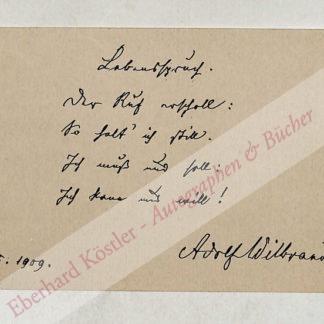 Lebensspruch.
Der Ruf erscholl:
So halt' ich still.
Ich muß und soll;
Ich kann und will!
1909.
Adolf Wilbrand
Eberhard Köstler - Autographen & Bücher